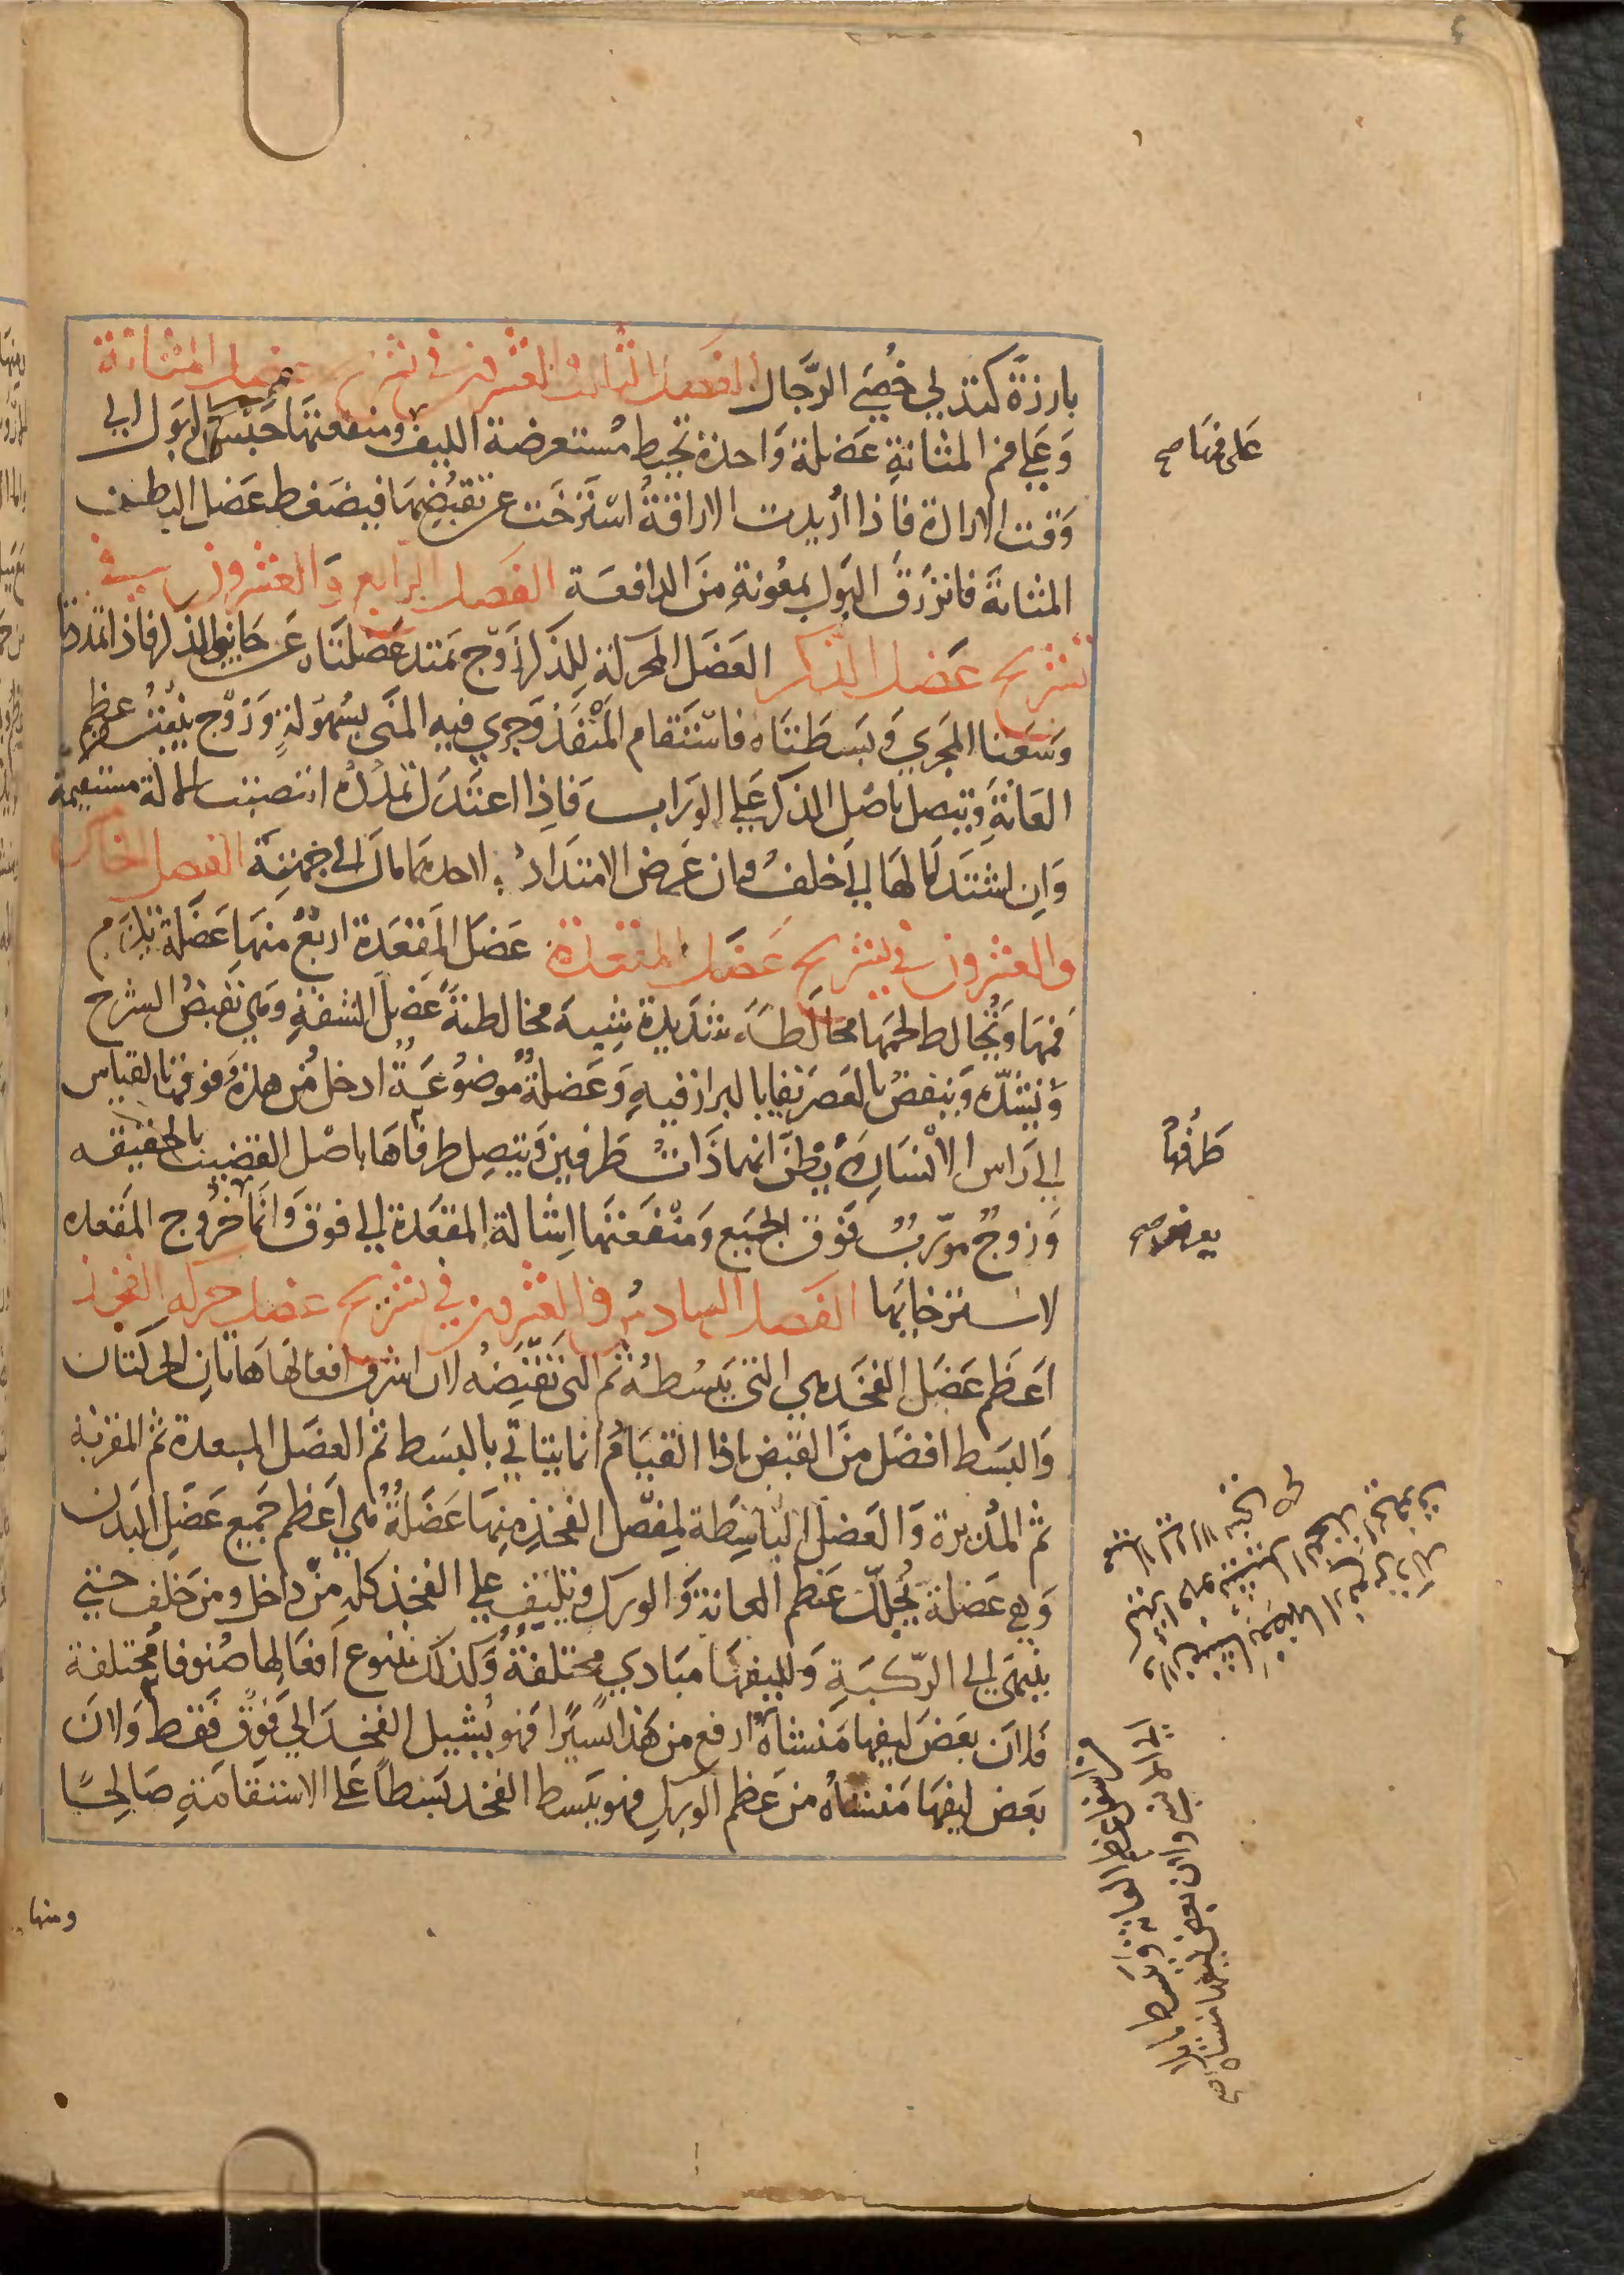 بارزة كتدلي خصي الرجال الفصل الثالث والعشرون في تشريح عضل المثانة
وعلي فم المثانة عضلة واحدة تحيط مستعرضة الليف ومنفعتها حبس البول الي
وقت الارادة فاذا اريدت الاراقة استرخت عن تقبضها فيضغط عضل البطن
المثانة فانزرق البول بمعونة من الدافعة الفصل الرابع والعشرون في
تشريح عضل الذكر العضل المحركة للذكر زوج تمتد عضلتاه عن جانبي الذكر فاذا تمددتا
وسعتا المجري وبسطتاه فاستقام المنفذ وجري فيه المني بسهولة وزوج ينبت من عظم
العانة ويتصل باصل الذكر علي الوراب فاذا اعتدل تمدده انتصبت الالة مستقيمة
وان اشتد امالها الي خلف وان عرض الامتداد لاحدهما مال الي جهته الفصل الخامس
والعشرون في تشريح عضل المقعدة عضل المقعدة اربع منها عضلة تلزم
فمها وتخالط لحمها مخالطة شديدة شبيه مخالطة عضل الشفة وهي تقبض الشرج
وتشده وتنفض بالعصر بقايا البراز فيه وعضلة موضوعة ادخل من هذه وفوقها بالقياس
الي راس الانسان ويظن انها ذات طرفين ويتصل طرفاها باصل القضيب بالحقيقه
وزوج مورب فوق الجميع ومنفعتها اشالة المقعدة الي فوق وانما خروج المقعده
لاسترخايها الفصل السادس والعشرون في تشريح عضل حركه الفخذ
اعظم عضل الفخذ هي التي تبسطه ثم التي تقبضه لان اشرف افعالها هاتان الحركتان
والبسط افضل من القبض اذا القيام انما يتاتي بالبسط ثم العضل المبعدة ثم المقربة
ثم المديرة والعضل الباسطة لمفصل الفخذ منها عضلة هي اعظم جميع عضل البدن
وهي عضلة تجلل عظم العانة والورك وتلتف علي الفخذ كله من داخل ومن خلف حتي
ينتهي الي الركبة ولليفها مبادي مختلفة وكذلك تتنوع افعالها صنوفا مختلفة
فلان بعض ليفها منشاه ارفع من هذا يسيرا فهو يشيل الفخذ الي فوق فقط ولان
بعض ليفها منشاه من عظم الورك فهو يبسط الفخذ بسطا علي الاستقامة صالحا
ومنها
علي فمها صح
طرفها
يعرض صح